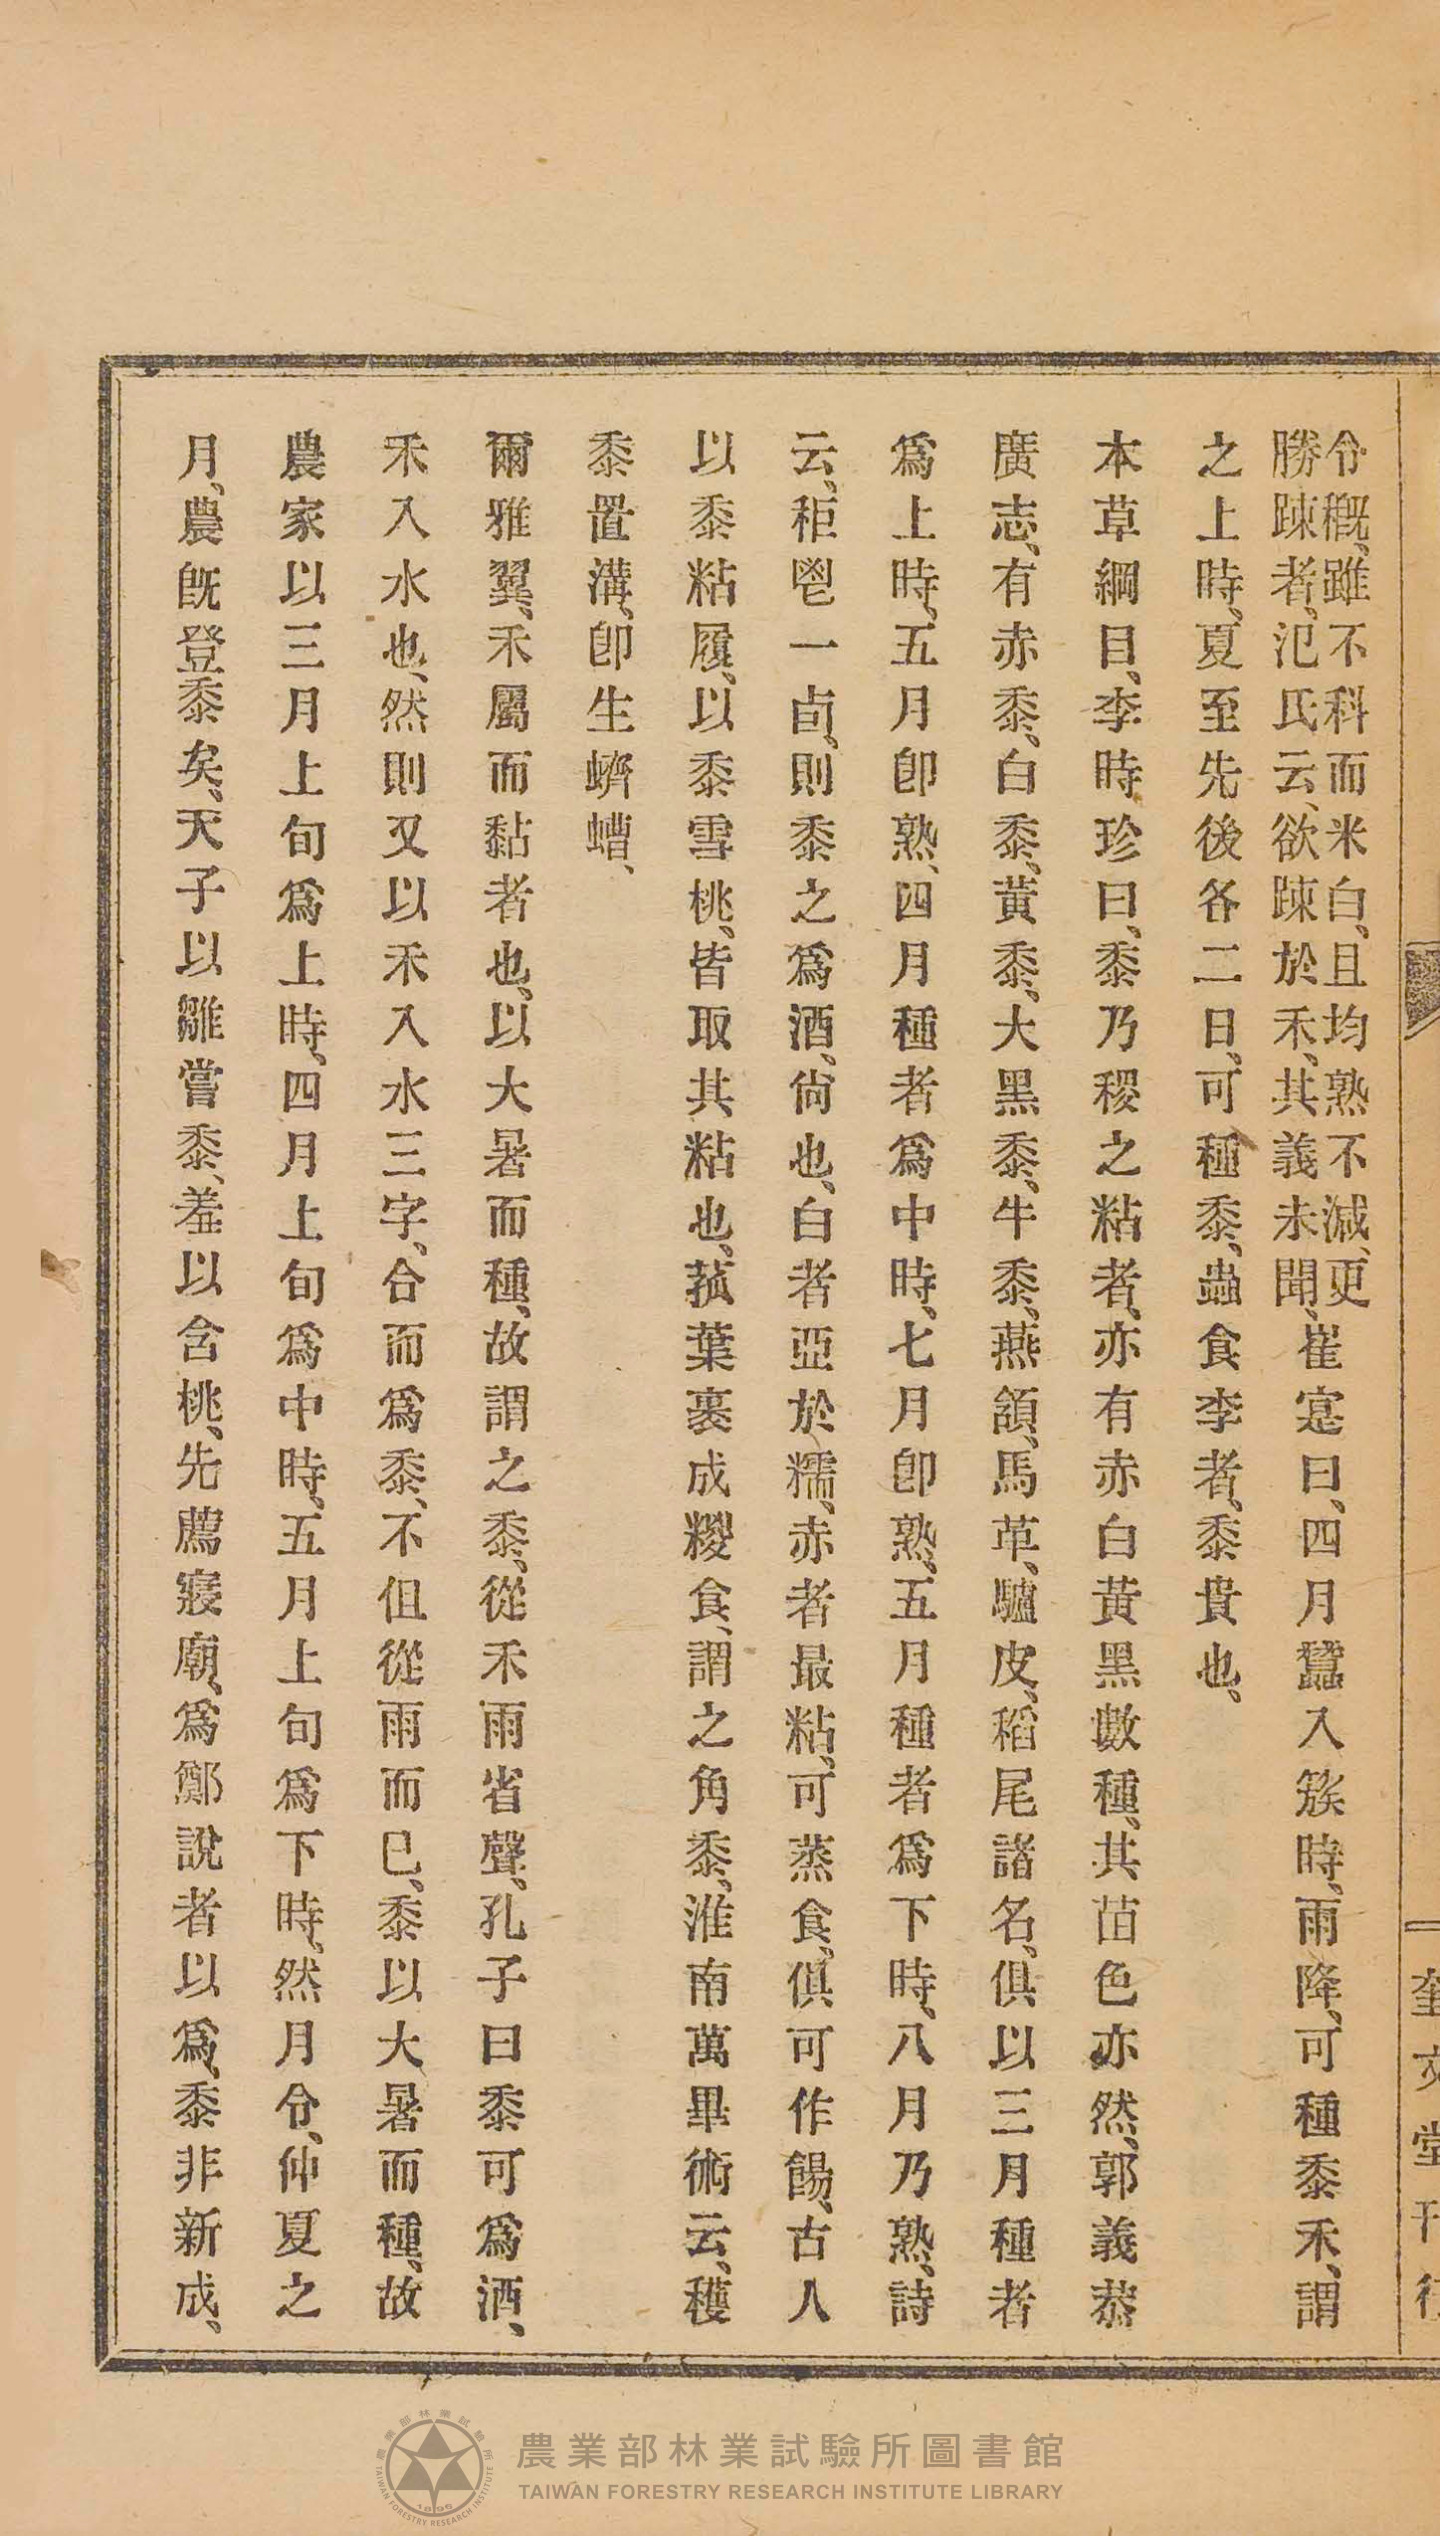 令穊、雖不科而米白、且均熟不減、更
勝踈者、氾氏云、欲踈於禾、其義未聞、
崔寔曰、四月蠶入簇時、雨降、可種黍禾、謂
之上時、夏至先後各二日、可種黍、蟲食李者、黍貴也、
本草綱目、李時珍曰、黍乃稷之粘者、亦有赤白黃黑數種、其苗色亦然、郭義恭
廣志、有赤黍、白黍、黃黍、大黑黍、牛黍、燕頷、馬革、驢皮、稻尾諸名、俱以三月種者
爲上時、五月卽熟、四月種者爲中時、七月卽熟、五月種者爲下時、八月乃熟、詩
云、秬鬯一卣、則黍之爲酒、尙也、白者亞於糯、赤者最粘、可蒸食、俱可作餳、古人
以黍粘履、以黍雪桃、皆取其粘也、菰葉裹成糉食、謂之角黍、淮南萬畢術云、穫
黍置溝、卽生蠐螬、
爾雅翼、禾屬而黏者也、以大暑而種、故謂之黍、從禾雨省聲、孔子曰黍可爲酒、
禾入水也、然則又以禾入水三字、合而爲黍、不但從雨而已、黍以大暑而種、故
農家以三月上旬爲上時、四月上旬爲中時、五月上旬爲下時、然月令、仲夏之
月、農旣登黍矣、天子以雛嘗黍、羞以含桃、先薦寢廟、爲鄭說者以爲、黍非新成、
奎文堂刊行
農業部林業試驗所圖書館
TAIWAN FORESTRY RESEARCH INSTITUTE LIBRARY
農業部林業試驗所
TAIWAN FORESTRY RESEARCH INSTITUTE
1895